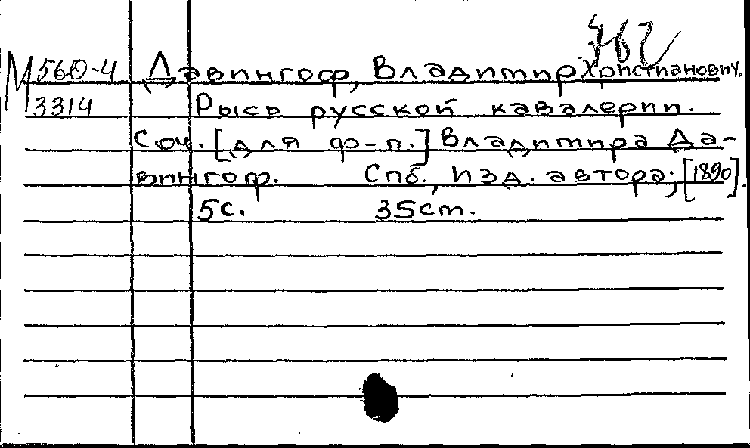 762
М 560-4 Давингоф, Владимир Христианович.
3314 Рысь русской кавалерии.
Соч. [для ф-п.] Владимира Да-
вингоф. Спб., изд. автора, [1890].
5с. 35см.